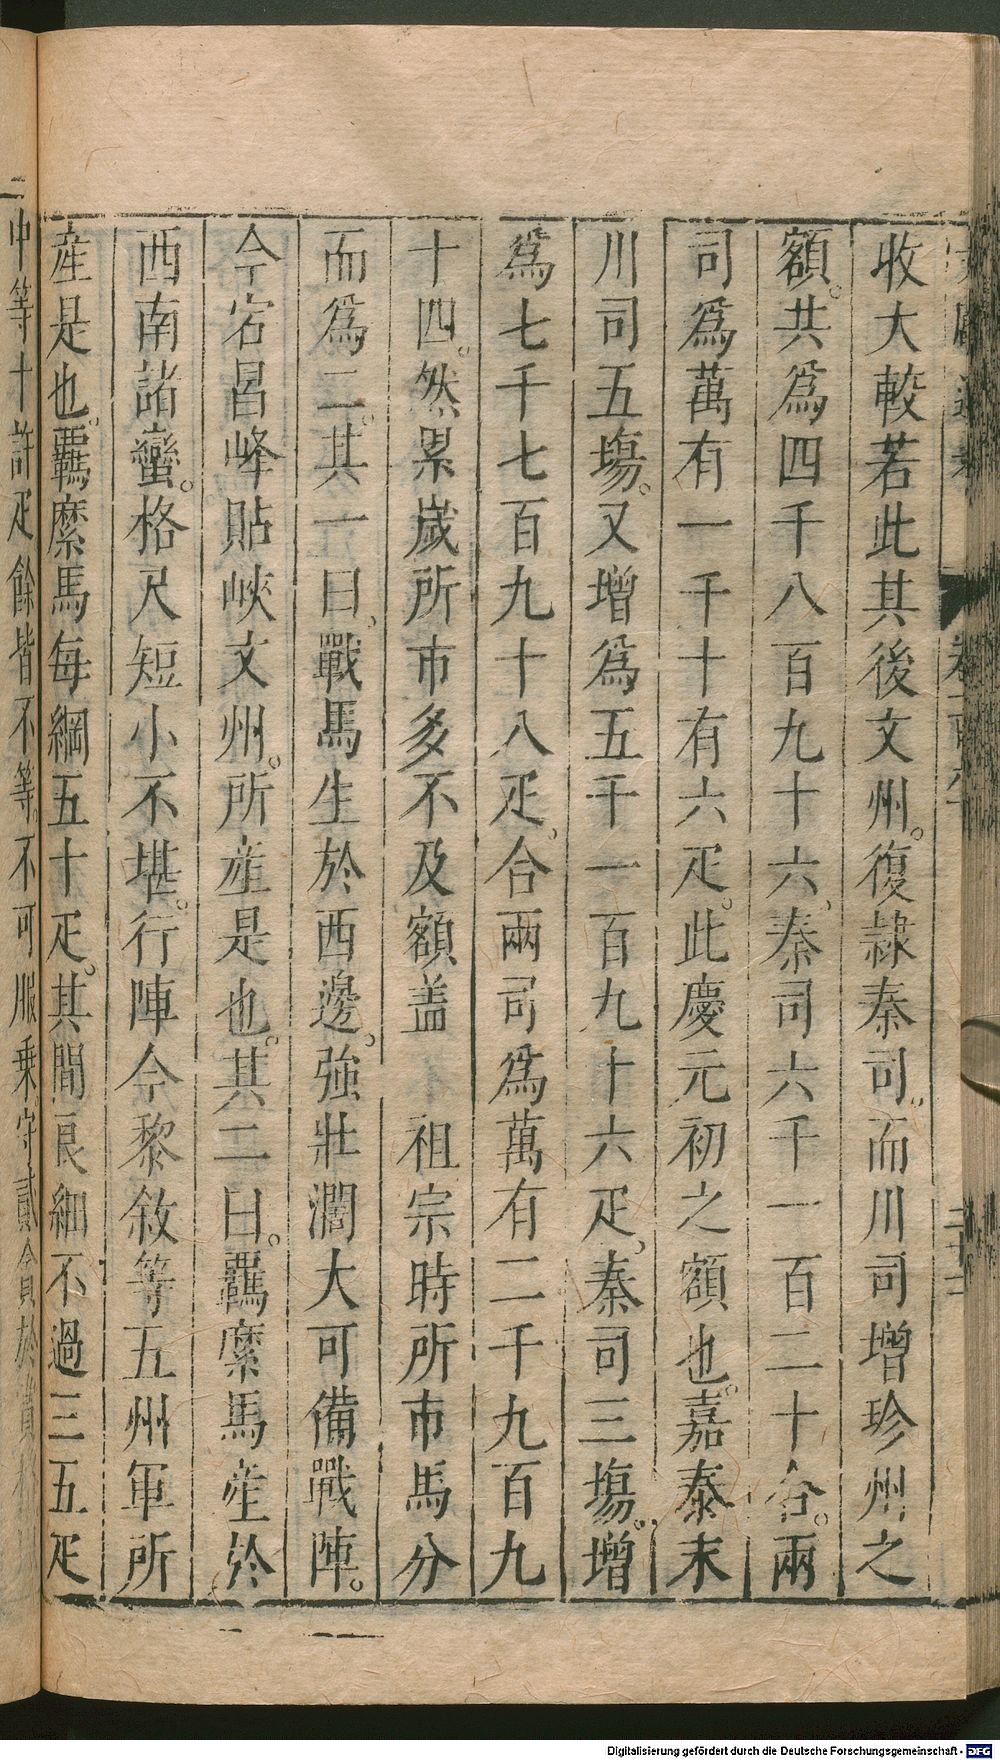 收大較若此其後文州。復隷秦司。而川司增珍州之
額。共爲四千八百九十六、秦司六千一百二十合。兩
司爲萬有一千十有六疋。此慶元初之額也。嘉泰末
川司五塲。又增爲五千一百九十六疋、秦司三塲。增
爲七千七百九十八疋。合兩司爲萬有二千九百九
十四。然累歲所市多不及額盖　祖宗時所市馬分
而爲二。其一曰、戰馬生於西邊。強壯濶大可備戰陣。
今宕昌峰貼峽文州。所産是也。其二曰。羈縻馬産於
西南諸蠻。格尺短小不堪。行陣今黎敘等五州軍所
産是也。羈縻馬每綱五十疋。其間良細不過三五疋
中等十許疋餘皆不等。不可服乗守貳貪於賞
Digitalisierung gefördert durch die Deutsche Forschungsgemeinschaft - DFG